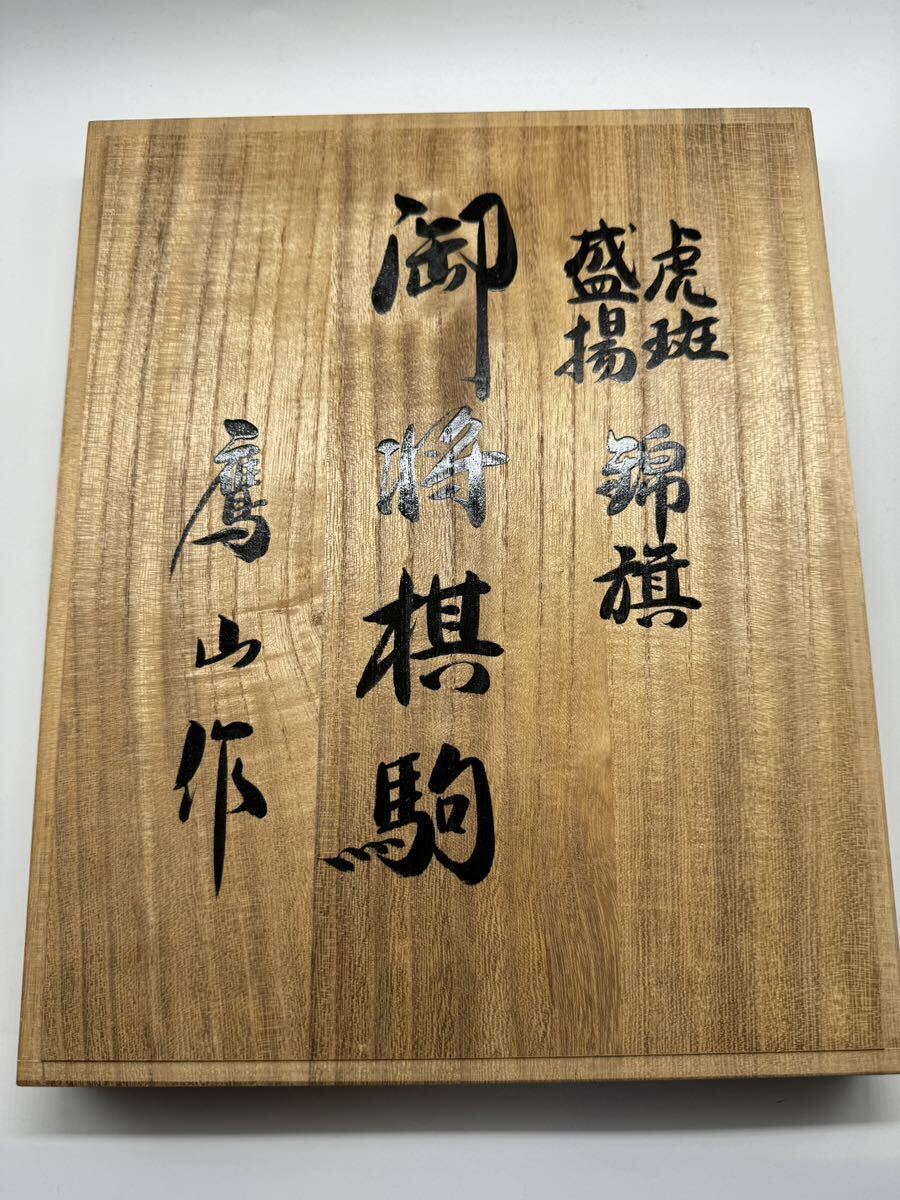 虎斑
盛揚
錦旗
御将棋駒
鷹山作